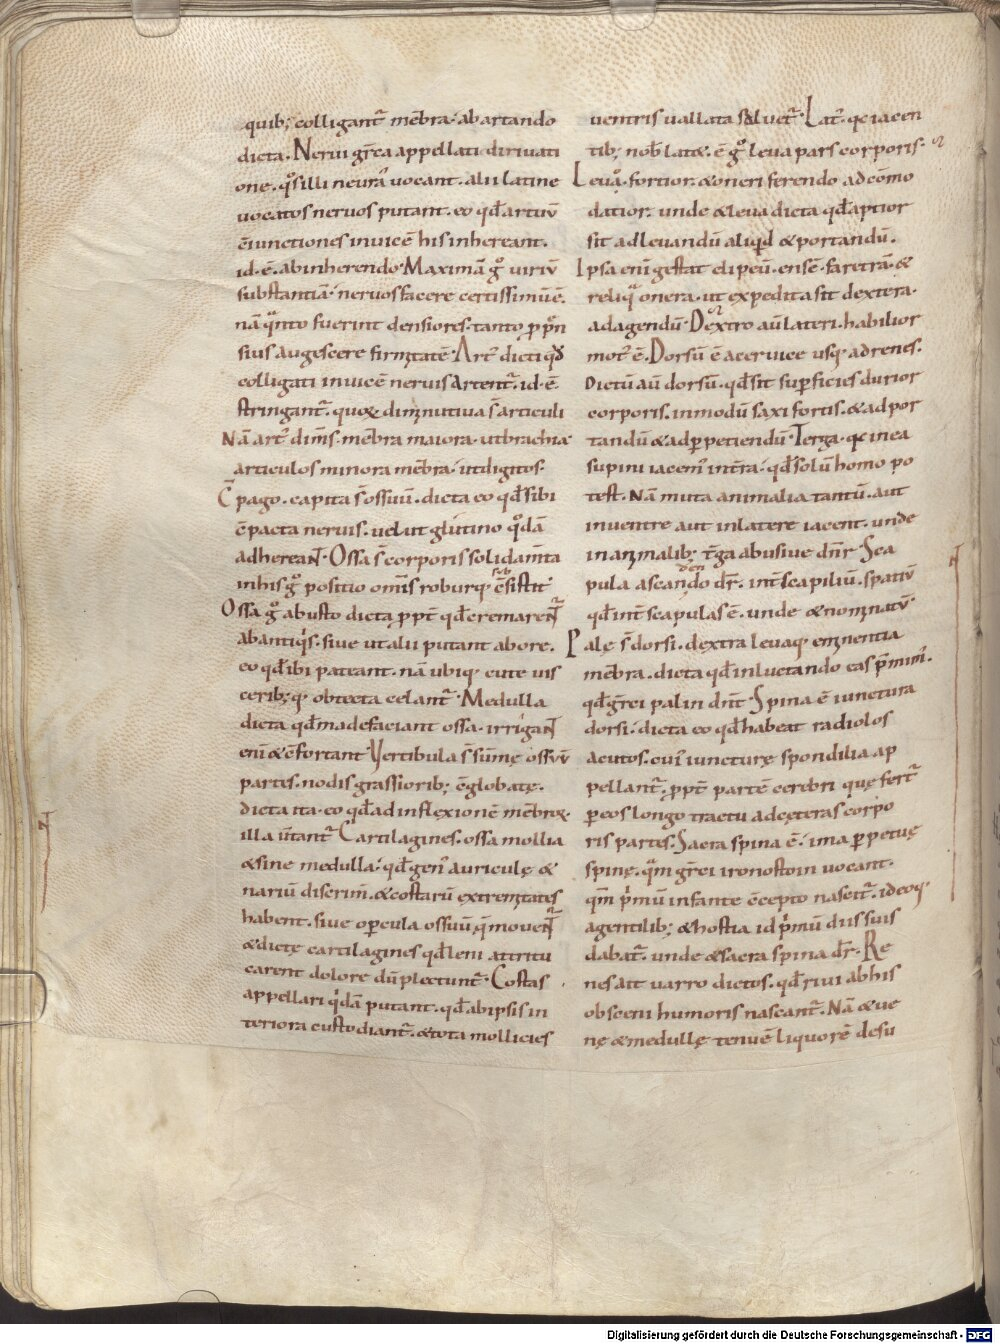 quib; colligant᷑ mēbra· ab artando
dicta. Nerui gr̄ca appellati dirivati
one. qͦs illi neura uocant. alii latine
uocatos neruos putant. eo qđ artuū
ēiunctiones inuicē his inhereant.
id·ē. ab inherendo· Maximā g̊ uiriū
substantiā· neruos facere certissimū ē.
nā qͣnto fuerint densiores· tanto p̱ pͦn
sius augescere firmitatē· Art᷑ dicti qđ
colligati inuicē neruis Artent᷑. id·ē.
stringant᷑. quoꝝ diminutiua s̄ articuli
Nā art᷑ dim̄s. mēbra maiora· ut brachia
articulos minora mēbra· ut digitos·
C̄pago. capita s̄ ossiuū. dicta eo qđ sibi
c̄pacta neruis. uelut glutino qͦdā
adhereant· Ossa s̄ corporis solidam̄ta
in his g̊ positio om̄is roburq· c̄sistit
Ossa g̊ ab usto dicta pp̄t qđ cremarent᷑
ab antiqͥs. siue ut alii putant ab ore.
eo qđ ibi pateant. nā ubiq· cute uis
cerib;q· obtecta celant᷑· Medulla
dicta qđ madefaciant ossa. irrigant
eni & c̄fortant· Vertibula s̄ sūmę ossuū
partes. nodis grassiorib; c̄globatę.
dicta ita· eo qđ ad inflexionē mēbroꝝ·
illa ūtant᷑· Cartilagines. ossa mollia
& sine medulla· qđ gen᷑ auriculę &
nariū discrim̄. & costarū extremitates
habent. siue opercula ossuū. q̄ mouent᷑
& dictę cartilagines qđ leni attritu
carent dolore dū plectunt᷑· Costas
appellari qͥdā putant. qđ ab ipsis in
teriora custodiant᷑. & tota mollicies
uentris uallata saluet᷑· Lat᷑. qꝛ iacen
tib; nob̄ latet. ē g̊ leua pars corporis·
Leuo᷑. fortior. & oneri ferendo adcōmo
datior. unde & leua dicta qđ aptior
sit ad leuandū aliqͥd & portandū.
Ipsa eni gestat clipeū. ensē. faretrā· &
reliqͣ onera. ut expedita sit dextera·
ad agendū· Dextro aū lateri. habilior
mot᷑ ē. Dorsū ē a ceruice usq· ad renes.
Dictū aū dorsū. qđ sit sup̱ficies durior
corporis. in modū saxi fortis. & ad por
tandū & ad p̱petiendū· Terga· qꝛ in ea
supini iacem᷑ in t̄ra· qđ solū homo po
test. Nā muta animalia tantū. aut
in uentre aut in latere iacent. unde
in animalib; t̄ga abusiue dn̄r· Sca
pula ascando dr̄. int̄scapiliū. spatiū
qđ int̄ scapulas ē. unde & nominatū·
Palę s̄ dorsi. dextra leuaq· eminentia
mēbra. dicta qđ in luctando eas p̄mim᷑.
qđ gr̄ci palin dn̄t· Spina ē iunctura
dorsi· dicta eo qđ habeat radiolos
acutos. cui᷑ iuncturę spondilia ap
pellant᷑. pp̄t partē cerebri quę fert᷑
p̱ eos longo tractu ad ceteras corpo
ris partes. Sacra spina ē. ima p̱petuę
spinę. qͣm gr̄ci ironostoin uocant.
qm̄ pͥmū infante c̄cepto nascit᷑. ideoq·
a gentilib; & hostia id pͥmū diis suis
dabat᷑. unde & sacra spina dr̄· Re
nes ait uarro dictos. qđ riui ab his
obsceni humoris nascant᷑. Nā & ue
nę & medullę tenuē liquorē desu
Digitalisierung gefördert durch die Deutsche Forschungsgemeinschaft - DFG